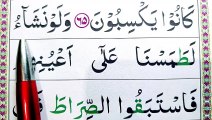 كَانُوْا يَكْسِبُوْنَ ﴿۶۵﴾ وَلَوْ نَشَآءُ
لَطَمَسْنَا عَلٰٓى اَعْيُنِهِمْ
فَاسْتَبَقُوا الصِّرَاطَ